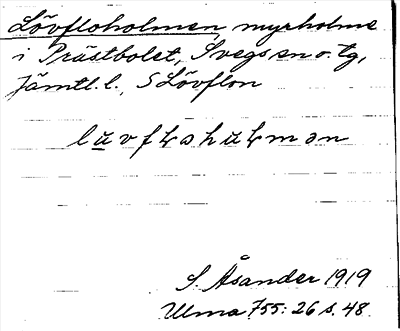 Lövfloholmen, myrholme
i Prästbolet, Svegs sn o. tg,
Jämtl. l., S Lövflon
S. Åsander 1919
Ulma 755: 26 s. 48.